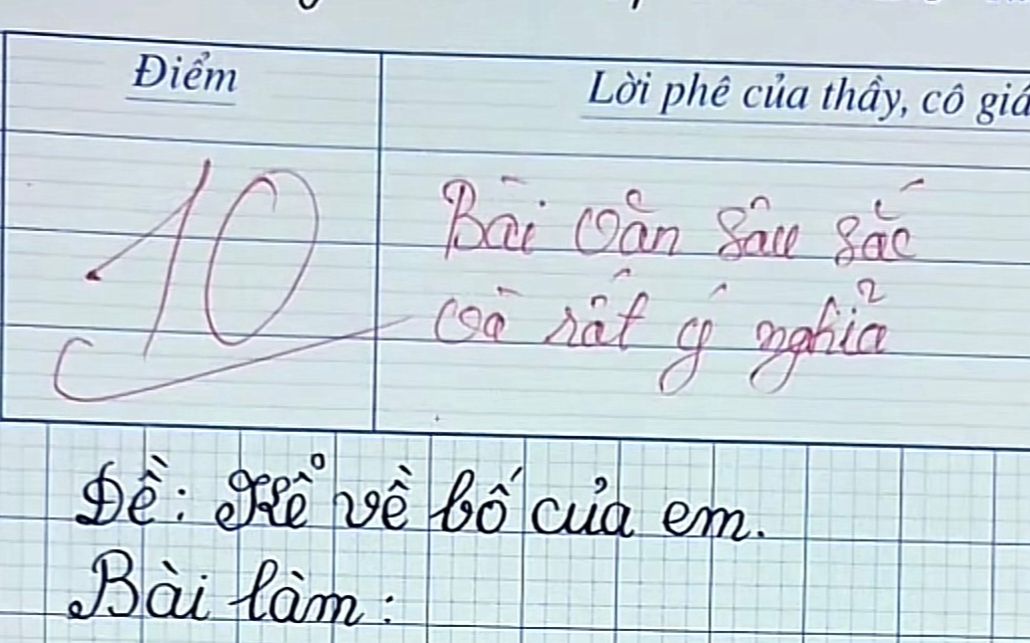 Điểm
Lời phê của thầy, cô giá
10
Bài văn sâu sắc
và rất ý nghỉa
Đề: Kể về bố của em.
Bài làm: